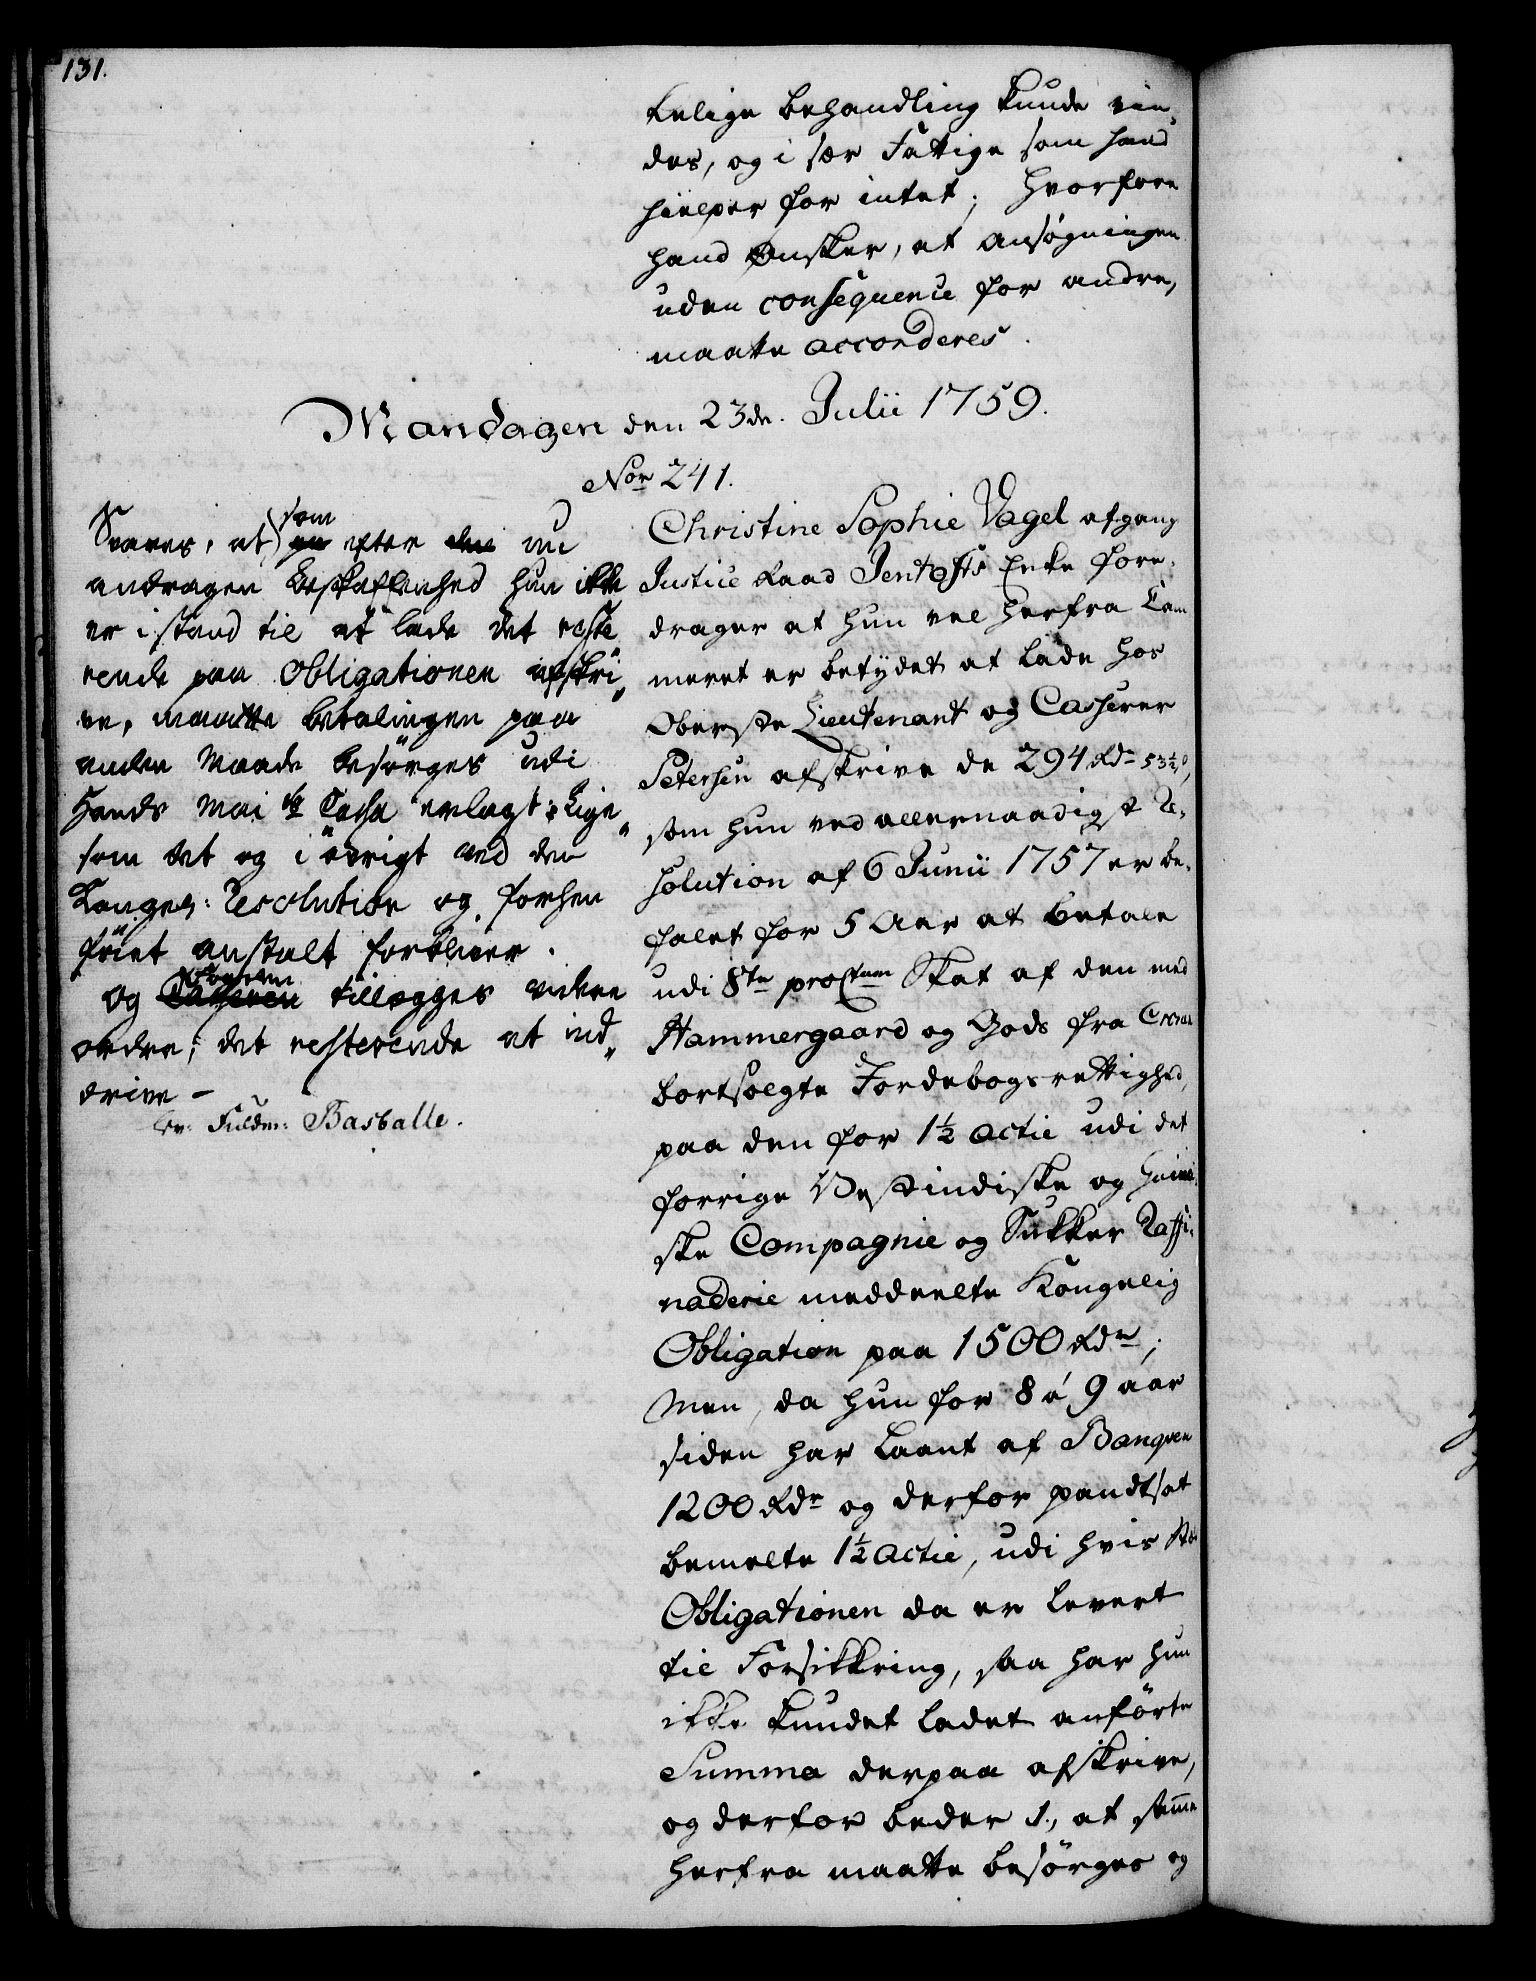 131.
kelige behandling kunde vin-
des, og i sær Fattige som hand
hielper for intet; hvorfore
hand ønsker, at ansøgningen
uden consequence for andre,
maatte accorderes.
Mandagen den 23de. Julii 1759.
Nor 241.
Svares, at som efter nu
andragen beskaffenhed hun ikke
er i stand til at lade det reste
rende paa Obligationen afskri
ve, maatte betalingen paa
anden Maade besørges udi
Hends Mai tz Cassa erlagt; Lige
som det og i øvrigt ved den
Konges: Resolution og forhen
føiet anstalt forbliver.
og tillægges videre
ordre, det resterende at ind
drive –
Fuldm: Basballe.
Christine Sophie Vagel afgang
Justice Raad Jentofts Enke fore-
drager at hun vel herfra Cam
meret er betydet at lade hos
Oberste Lieutenant og Casserer
Petersen afskrive de 294 Rdr 53½ s,
som hun ved allernaadigst Re-
solution af 6 Junii 1757 er be-
falet for 5 Aar at betale
udi 8te proCtum Skat af den med
Hammergaard og Gods fra Cronen
bortsolgte Jordebogsrettighed,
paa den for 1½ actie udi det
forrige Vestindiske og Guinei
ske Compagnie og Sukker Raffi-
naderie meddeelte Kongelig
Obligation paa 1500 Rdr;
Men, da hun for 8 á 9 aar
siden har laant af Banqven
1200 Rdr og derfor pandtsat
bemelte 1½ Actie, udi hvis
Obligationen da er levert
til Forsikkring, saa har hun
ikke kundet ladet anførte
Summa derpaa afskrive,
og derfor beder 1., at samme
herfra maatte besørges og